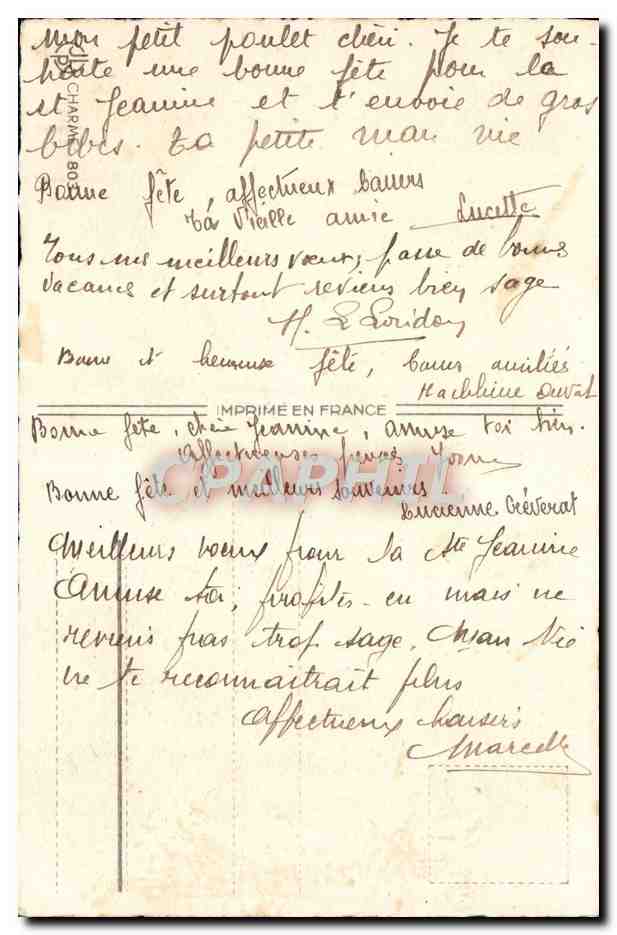 Mon petit poulet chéri. Je te sou-
haite une bonne fête pour la
st Jeanine et t'envoie de gros
bibis. Ta petite man vie
Bonne fête, affectueux baisers
Ta Vieille amie Lucette
Tous mes meilleurs vœux, passe de bonnes
vacances et surtout reviens bien sage
Bonne et heureuse fête, bons amitiés
IMPRIMÉ EN FRANCE
Bonne fête, chère Jeanine, amuse toi bien.
Affectueuses pensées Yvonne
CPAPHIL
Bonne fête et meilleurs souvenirs
Lucienne Créverat
Meilleurs vœux pour la Ste Jeanine
Amuse toi, profites-en mais ne
reviens pas trop sage. Man Vie
ne te reconnaitrait plus
Affectueux baisers
Marcelle